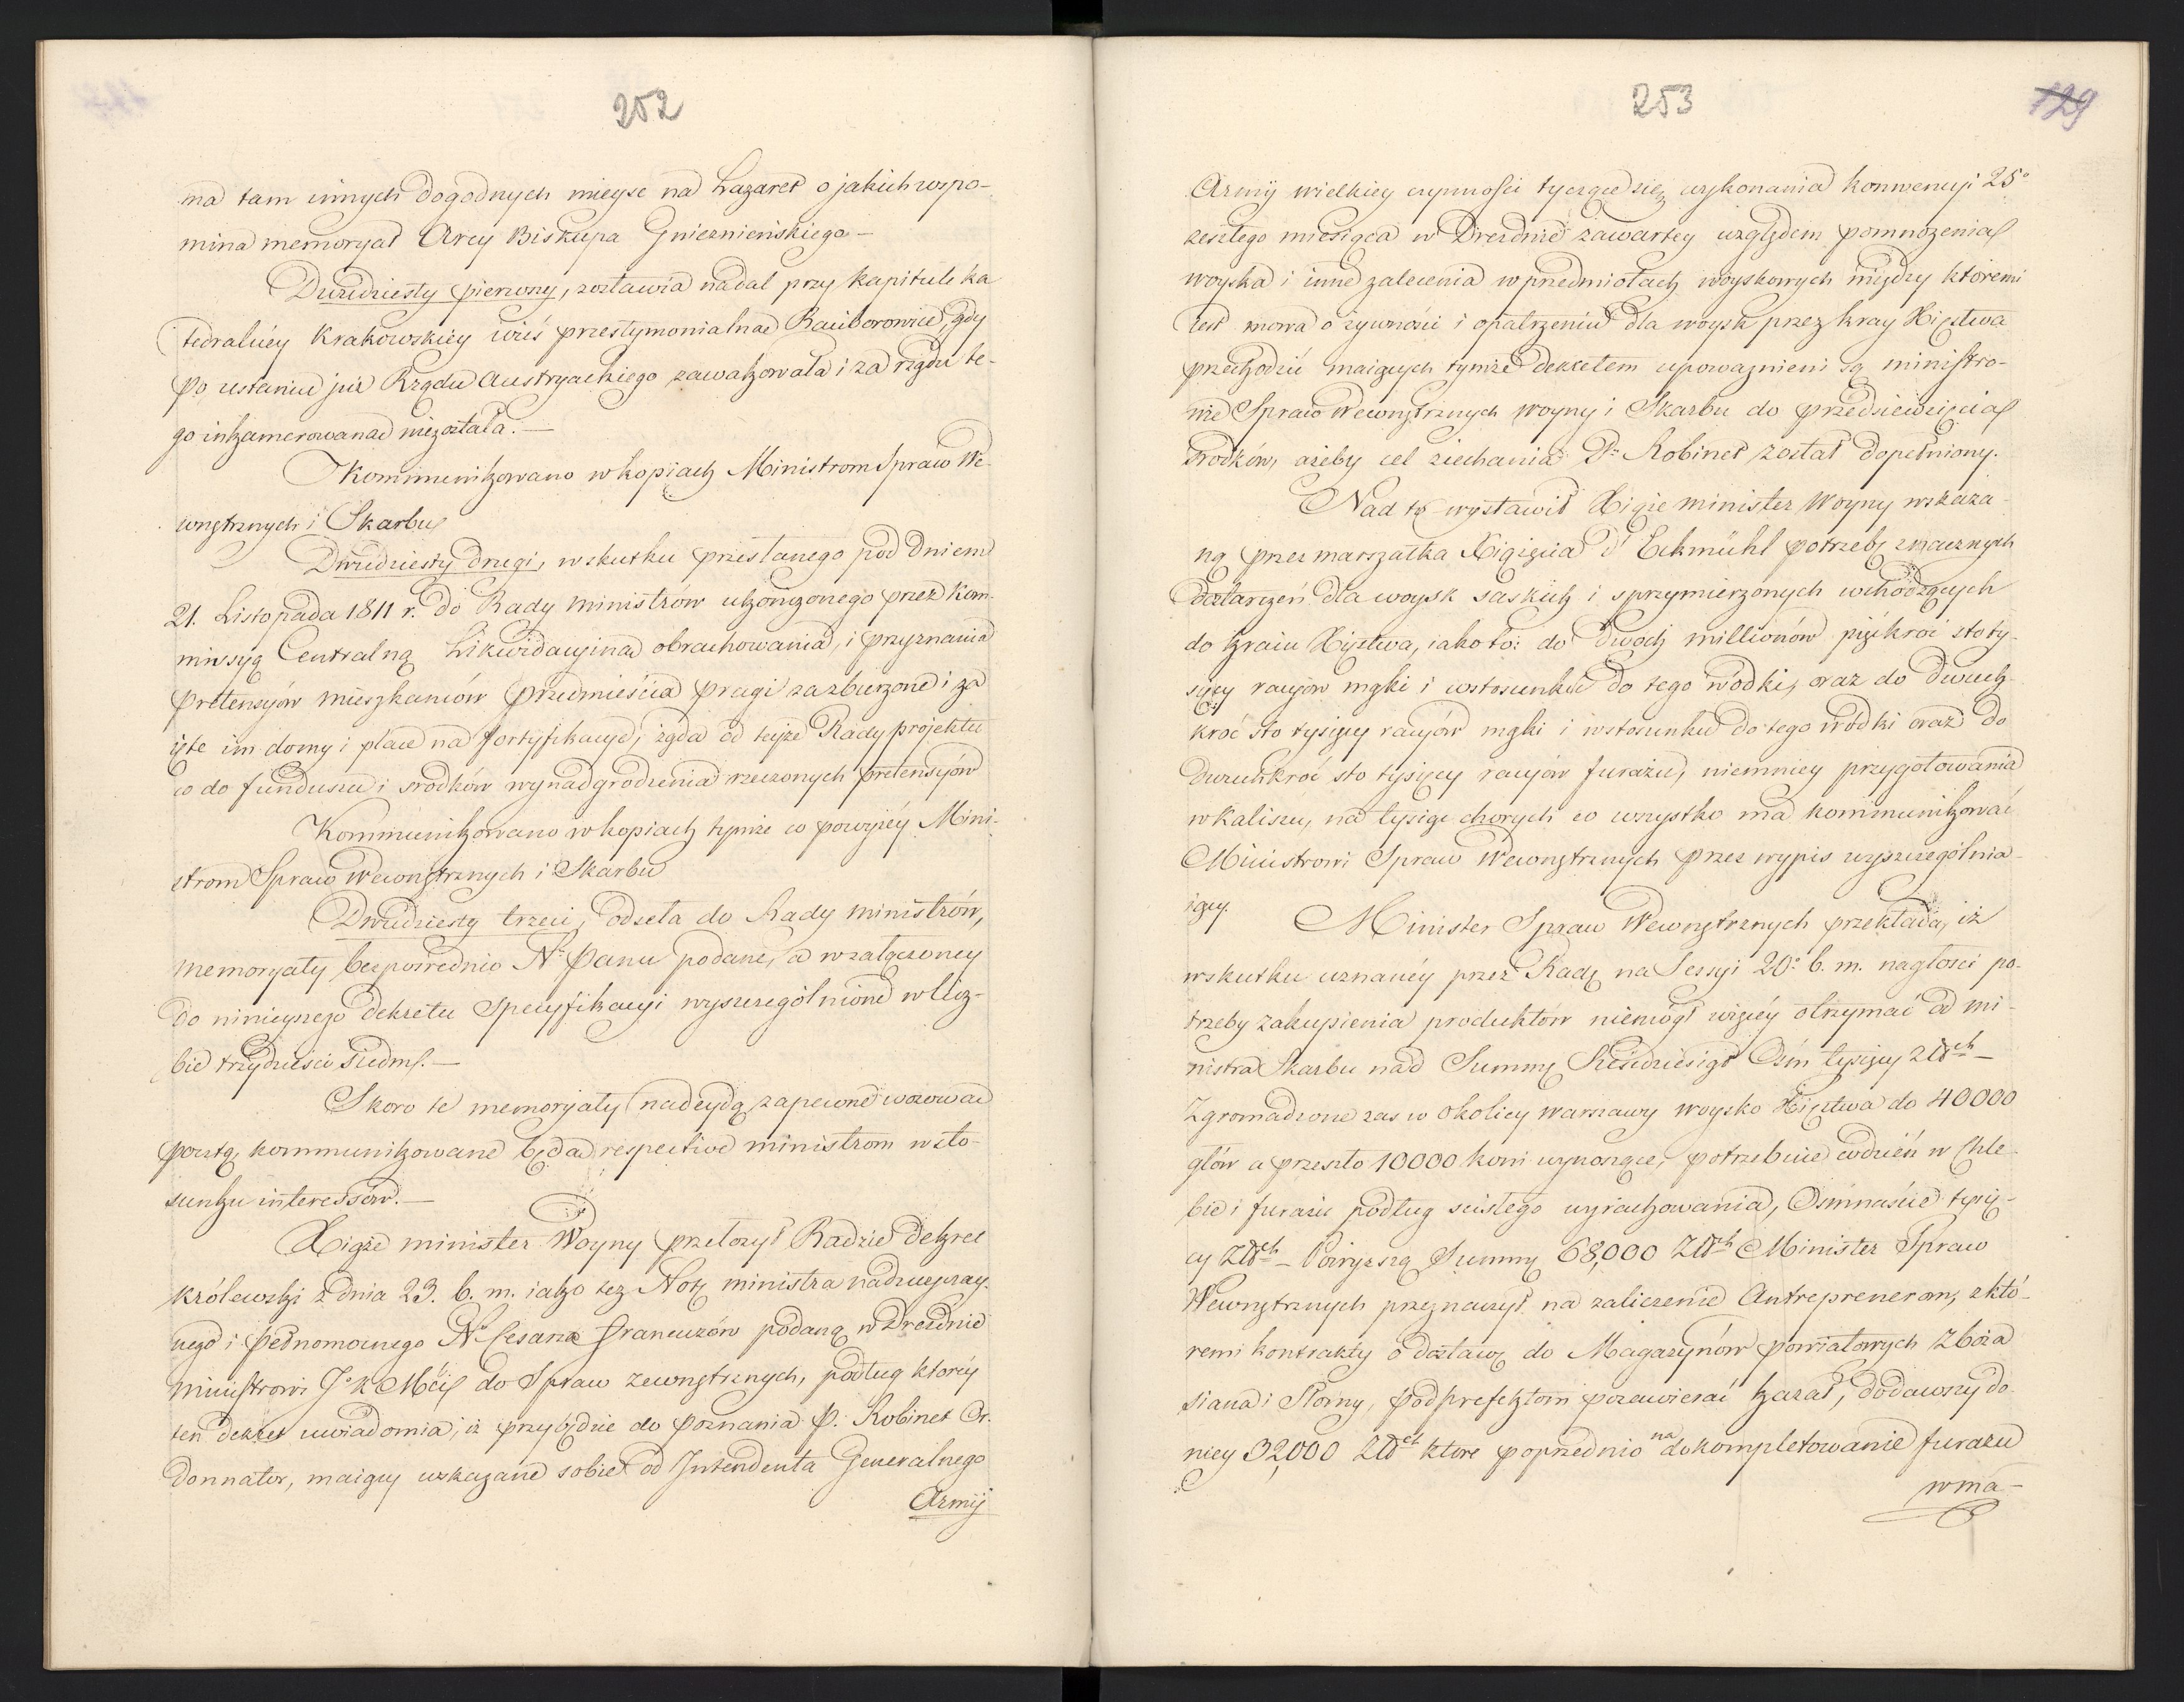 252
ma tam innych dogodnych mieysc na Lazaret o jakich wspo-
mina memoryał Arcy Biskupa Gnieznieńskiego –
Dwudziesty pierwszy, zostawia nadal przy kapitule ka
tedralnéy Krakowskiey wieś przestymonialną Raciborowice, gdy
po ustaniu już Rządu Austryackiego zawakowała i za rządu te-
go inkamerowaną niezostała. –
Kommunikowano w kopiach Ministrom Spraw We-
wnętrznych i Skarbu
Dwudziesty drugi, w skutku przesłanego pod dniem
21. Listopada 1811 r. do Rady Ministrów ukończonego przez Kom-
missyą Centralną Likwidacyiną obrachowania, i przyznania
pretensyów mieszkańców przedmieścia Pragi za zburzone i za
ięte im domy i place na fortyfikacye, żąda od teyże Rady projektu
co do funduszu i srodków wynadgrodzenia rzeczonych pretensyów
Kommunikowano w kopiach tymże co powyżéy Mini-
strom Spraw Wewnętrznych i Skarbu
Dwudziesty trzeci, odseła do Rady Ministrów,
memoryały bezpośrednio N. Panu podane, a w załączoney
do ninieyszego dekretu Specyfikacyi wyszczególnione w licz-
bie trzydzieści siedm. –
Skoro te memoryały nadeydą zapewne wozową
pocztą, kommunikowane będą respective Ministrom w sto-
sunku interessów. –
Xiąże Minister Woyny przełożył Radzie Dekret
królewski z dnia 23. b. m. iako też Notę ministra nadzwyczay-
nego i pełnomocnego N. Cesarza Francuzów podaną w Dreźnie
Ministrowi J. K. Mći do Spraw zewnętrznych, podług któréy
ten dekret uwiadomia, iż przybędzie do Poznania P. Robinet Or-
donnator, maiący wskazane sobie od Intendenta Generalnego
Armij
253
129
Armij wielkiey czynności tyczące się wykonania konwencyi 25º
zeszłego miesiąca w Dreźnie zawartey względem pomnożenia
woyska i inne zalecenia w przedmiotach woyskowych między któremi
iest mowa o żywności i opatrzeniu dla woysk przez kray Xięstwa
przechodzić maiących tymże dekretem upoważnieni są ministro-
wie Spraw Wewnętrznych Woyny i Skarbu do przedsięwzięcia
środków, ażeby cel ziechania P. Robinet został dopełniony.
Nad to wystawił Xiąże minister Woyny wskaza-
ną przez marszałka Xiążęcia d'Eckmühl potrzebę znacznych
dostarczeń dla woysk saskich i sprzymierzonych wchodzących
do kraiu Xięstwa, iako to: do dwóch millionów pięćkroć sto ty-
sięcy racyów mąki i w stosunku do tego wódki, oraz do dwuch-
kroć sto tysięcy racyów mąki i w stosunku do tego wódki oraz do
dwuchkroć sto tysięcy racyów furażu, niemniey przygotowania
w Kaliszu, na tysiąc chorych co wszystko ma kommunikować
Ministrowi Spraw Wewnętrznych przez wypis wyszczególnia-
iący.
Minister Spraw Wewnętrznych przekłada, iż
w skutku uznanéy przez Radę na Sessyi 20º b. m. nagłości po-
trzeby zakupienia produktów niemógł więcéy otrzymać od Mi-
nistra Skarbu nad Summę Sześćdziesiąt Ośm tysięcy Złłch –
Zgromadzone zaś w okolicy Warszawy woysko Xięstwa do 40000
głów a przeszło 10000 koni wynoszące, potrzebuie codzień w Chle-
bie i furażu podług ścisłego wyrachowania, Ośmnaście tysię-
cy Złłch – Powyższą Summę 68,000 Złłch Minister Spraw
Wewnętrznych przeznaczył na zaliczenie Antrepreneron, z któ-
remi kontrakty o dostawę do Magazynów powiatowych Zboża
siana i Słomy, podprefektom pozawierać kazał, dodawszy do
niey 32,000 Złłch które poprzednio na dokompletowanie furażu
w ma-